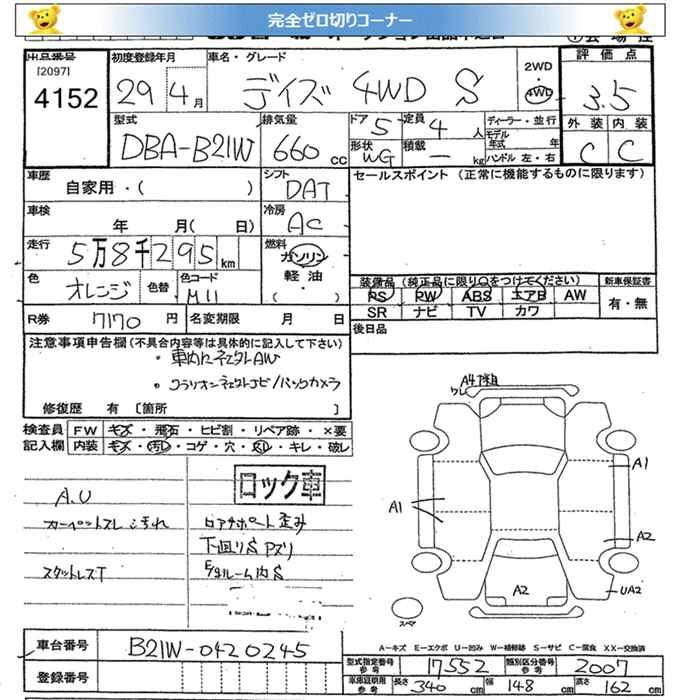 完全ゼロ切りコーナー
出品番号 初度登録年月 車名・グレード 評価点
[2097]
4152 29年4月 デイズ 4WD S 2WD・4WD 3.5
型式 排気量 ドア 5 定員 4人 ディーラー・並行 外装 内装
DBA-B21W 660cc 形状 WG 積載 ー kg モデル年式 年 C C
ハンドル 左・右
車歴 シフト セールスポイント (正常に機能するものに限ります)
自家用・( ) DAT
車検 年 月( 日) 冷房 AC
走行 5万8千295km 燃料 ガソリン
軽油
( )
色 オレンジ 色替 色コード M11
装備品 (純正品に限り○をつけてください) 新車保証書
PS PW ABS エアB AW 有・無
SR ナビ TV カワ
R券 7170円 名変期限 月 日 後日品
注意事項申告欄(不具合内容等は具体的に記入して下さい)
・車内ニネセタAW
修復歴 有 [箇所 ]
検査員 FW キズ・飛石・ヒビ割・リペア跡・×要
記入欄 内装 キズ・汚レ・コゲ・穴・スレ・キレ・破レ
ロック車
A.U
カーペットスレ 汚れ
スタットレスT
ロアサポート歪み
下回りS Pズリ
E/gルーム内S
A1
A1
A2
A2
UA2
スペア
A-キズ E-エクボ U-凹み W-補修跡 S-サビ C-腐食 XX-交換済
車台番号 B21W-0420245
型式指定番号 参考 17552 類別区分番号 参考 2007
登録番号
車庫証明用 参考 長さ 340 cm 幅 148 cm 高さ 162 cm